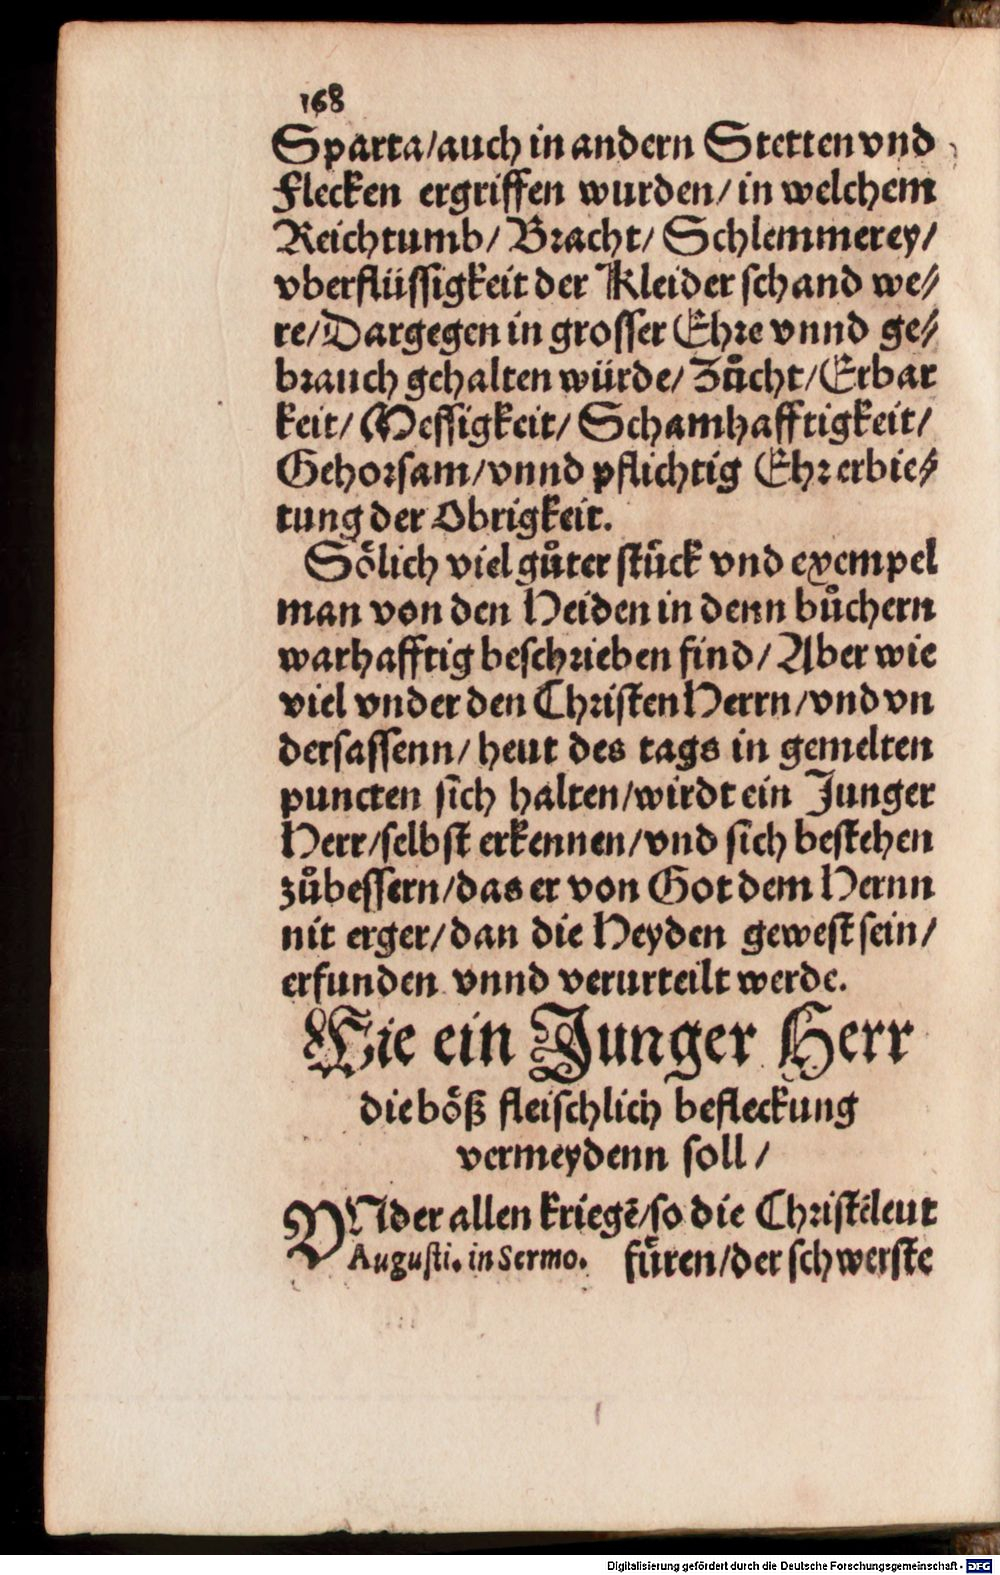 168
Sparta/auch in andern Stetten vnd
Flecken ergriffen wurden/in welchem
Reichtumb/ Bracht/ Schlemmerey/
vberflüssigkeit der Kleider schand we⸗
re/Dargegen in grosser Ehre vnnd ge⸗
brauch gehalten würde/ Zůcht/Erbar
keit/ Messigkeit/ Schamhafftigkeit/
Gehorsam/vnnd pflichtig Ehrerbie⸗
tung der Obrigkeit.
Soͤlich viel gůter stůck vnd exempel
man von den Heiden in denn bůchern
warhafftig beschrieben find/ Aber wie
viel vnder den Christen Herrn/vnd vn
dersassenn/ heut des tags in gemelten
puncten sich halten/wirdt ein Junger
Herr/selbst erkennen/vnd sich bestehen
zůbessern/das er von Got dem Hernn
nit erger/dan die Heyden gewest sein/
erfunden vnnd verurteilt werde.
Wie ein Junger Herr
die boͤß fleischlich befleckung
vermeydenn soll/
VNder allen kriegẽ/so die Christẽleut
Augusti. in Sermo. fuͤren/der schwerste
Digitalisierung gefördert durch die Deutsche Forschungsgemeinschaft - DFG